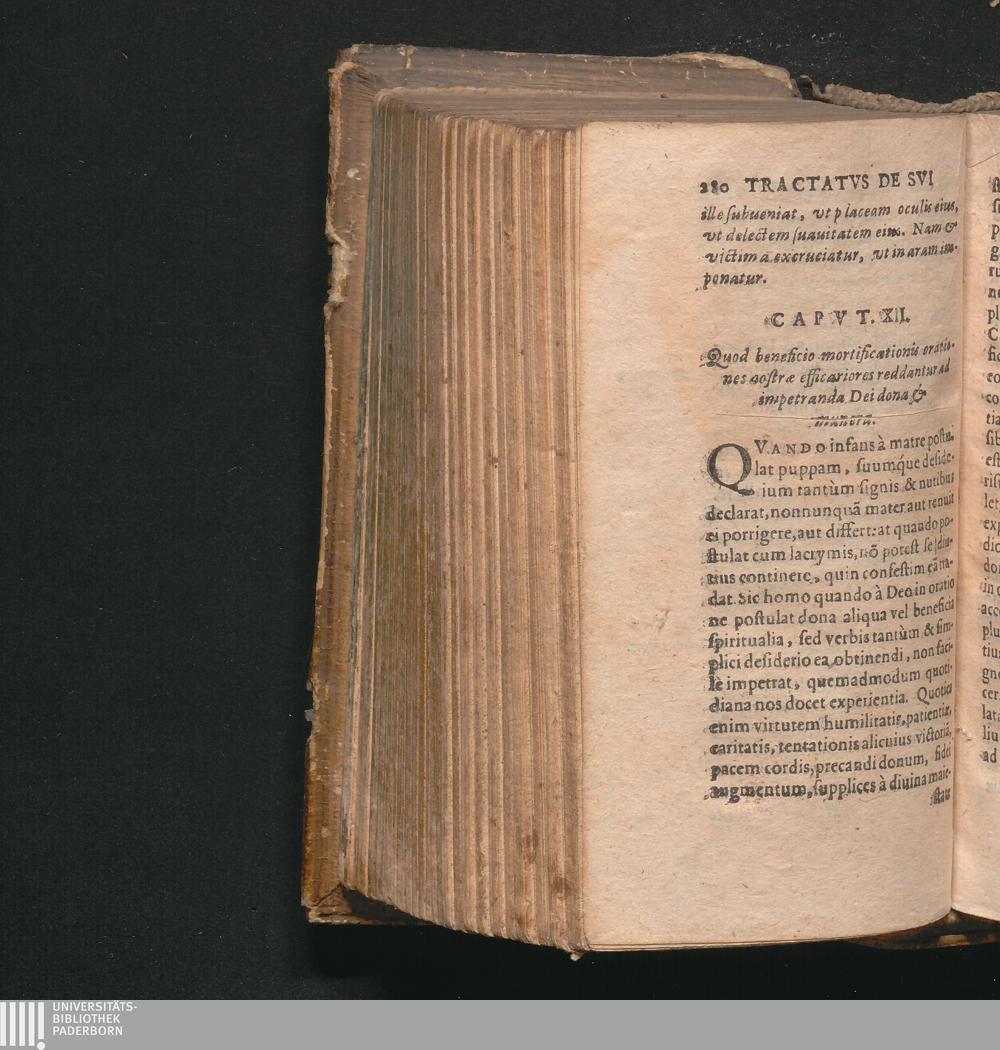 280 TRACTATVS DE SVI
ille subueniat, vt placeam oculis eius,
vt delectem suauitatem eius. Nam &
victima excruciatur, vt in aram im-
ponatur.
CAPVT. XII.
Quod beneficio mortificationis oratio-
nes nostræ efficaciores reddantur ad
impetranda Dei dona &
munera.
QVANDO infans à matre postu-
lat puppam, suumq́ue deside-
ium tantùm signis & nutibus
declarat, nonnunquā mater aut renuit
ei porrigere, aut differt: at quando po-
stulat cum lacrymis, nō potest se diu-
tius continere, quin confestim eā tra-
dat. Sic homo quando à Deo in oratio
ne postulat dona aliqua vel beneficia
spiritualia, sed verbis tantùm & sim-
plici desiderio ea obtinendi, non faci-
lè impetrat, quemadmodum quoti-
diana nos docet experientia. Quoties
enim virtutem humilitatis, patientiæ,
caritatis, tentationis alicuius victoriā,
pacem cordis, precandi donum, fidei
augmentum, supplices à diuina maie-
state
UNIVERSITÄTS-
BIBLIOTHEK
PADERBORN